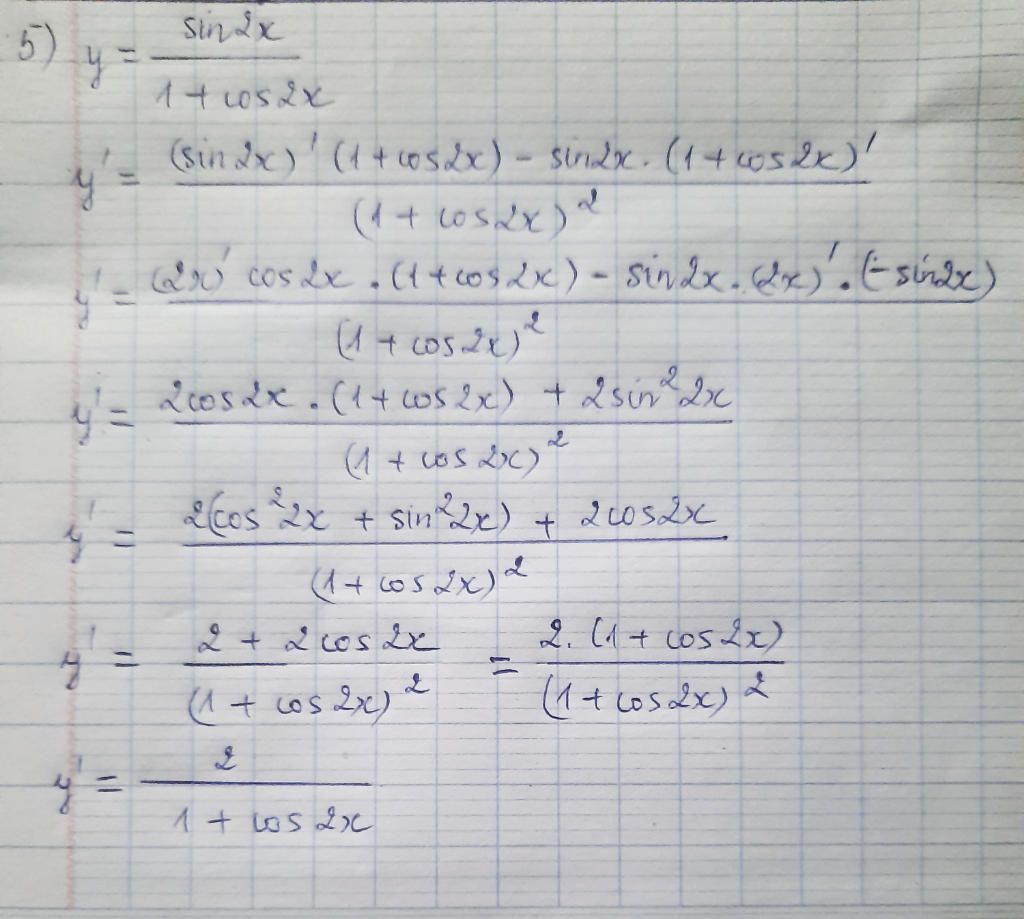 5) y = sin2x / 1 + cos2x
y' = (sin2x)' (1+cos2x) - sin2x . (1+cos2x)' / (1 + cos2x)²
y' = (2x)' cos2x . (1+cos2x) - sin2x . (2x)' . (-sin2x) / (1 + cos2x)²
y' = 2cos2x . (1+cos2x) + 2sin²2x / (1 + cos2x)²
y' = 2(cos²2x + sin²2x) + 2cos2x / (1 + cos2x)²
y' = 2 + 2cos2x / (1 + cos2x)² = 2. (1 + cos2x) / (1 + cos2x)²
y' = 2 / 1 + cos2x